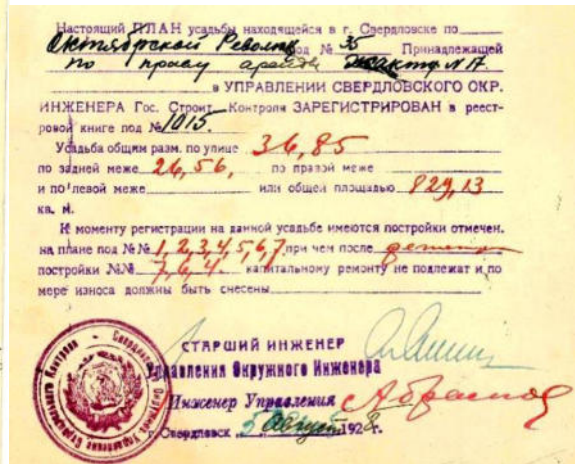 Настоящий ПЛАН усадьбы находящейся в г. Свердловске по
Октябрской Революц под № 35 Принадлежащей
по праву аренды жакту № 17.
в УПРАВЛЕНИИ СВЕРДЛОВСКОГО ОКР.
ИНЖЕНЕРА Гос. Строит. Контроля ЗАРЕГИСТРИРОВАН в реест-
ровой книге под № 1015.
Усадьба общим разм. по улице 36,85
по задней меже 26,56, по правой меже
и по левой меже или общей площадью 829,13
кв. м.
К моменту регистрации на данной усадьбе имеются постройки отмечен.
на плане под №№ 1, 2, 3, 4, 5, 6, 7 при чем после
постройки №№ 7, 6, 4. капитальному ремонту не подлежат и по
мере износа должны быть снесены
СТАРШИЙ ИНЖЕНЕР
Управления Окружного Инженера
Инженер Управления
г. Свердловск „5" Август 1928 г.